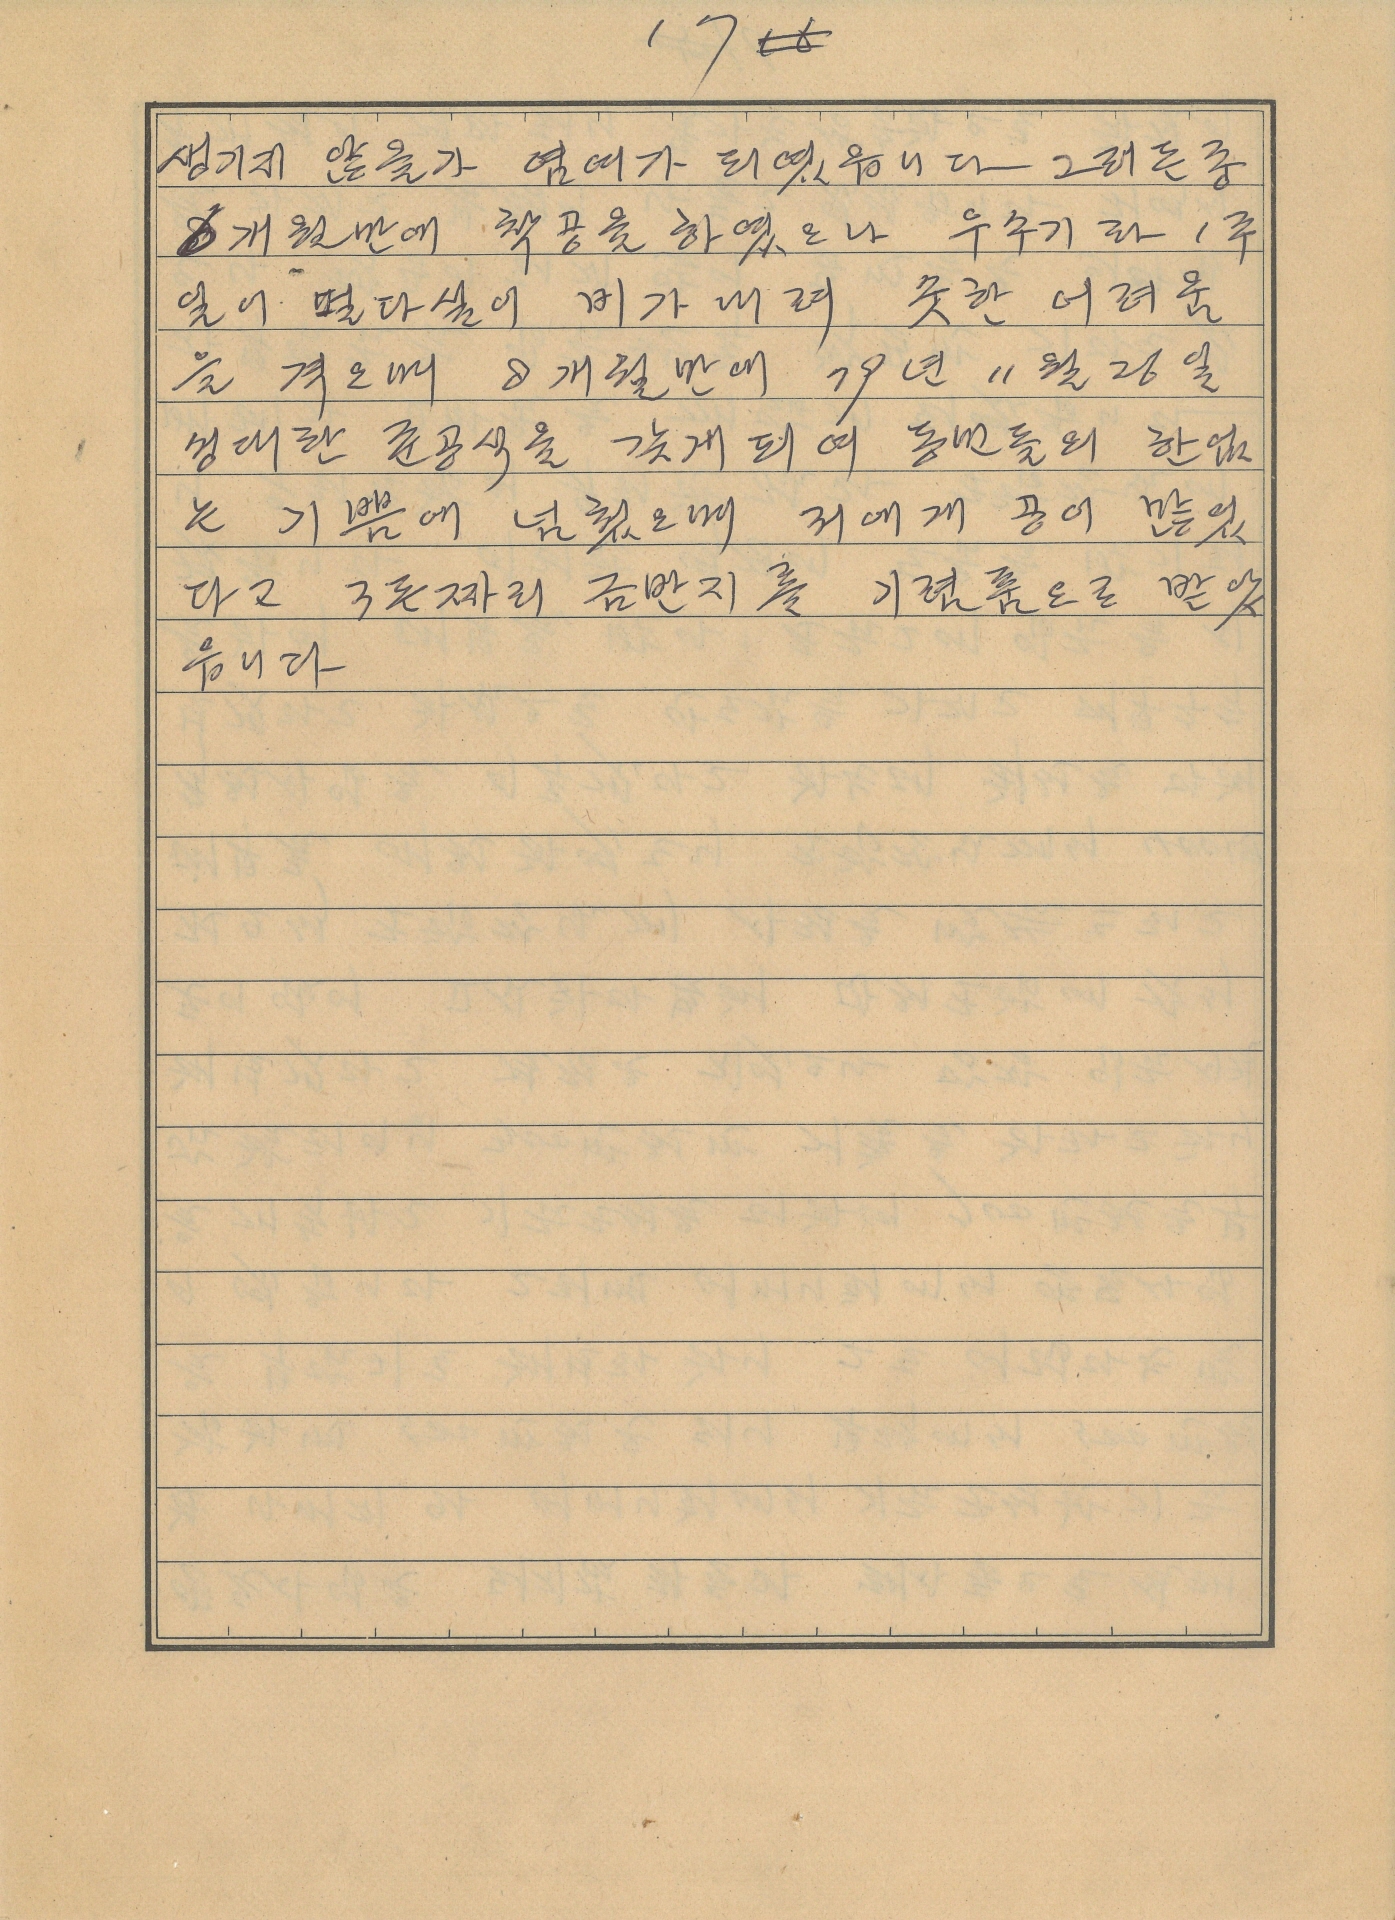 17 16
생기지 않을가 염여가 되였읍니다 그러든중
8개월만에 착공을 하였으나 우수기라 1주
일이 멀다싶이 비가 내려 뭇한 어려움
을 격으며 8개월만에 79년 11월 26일
성대한 준공식을 갖게 되여 동민들의 한없
는 기쁨에 넘쳤으며 저에게 공이 많었
다고 3돈짜리 금반지를 기렴품으로 받았
읍니다